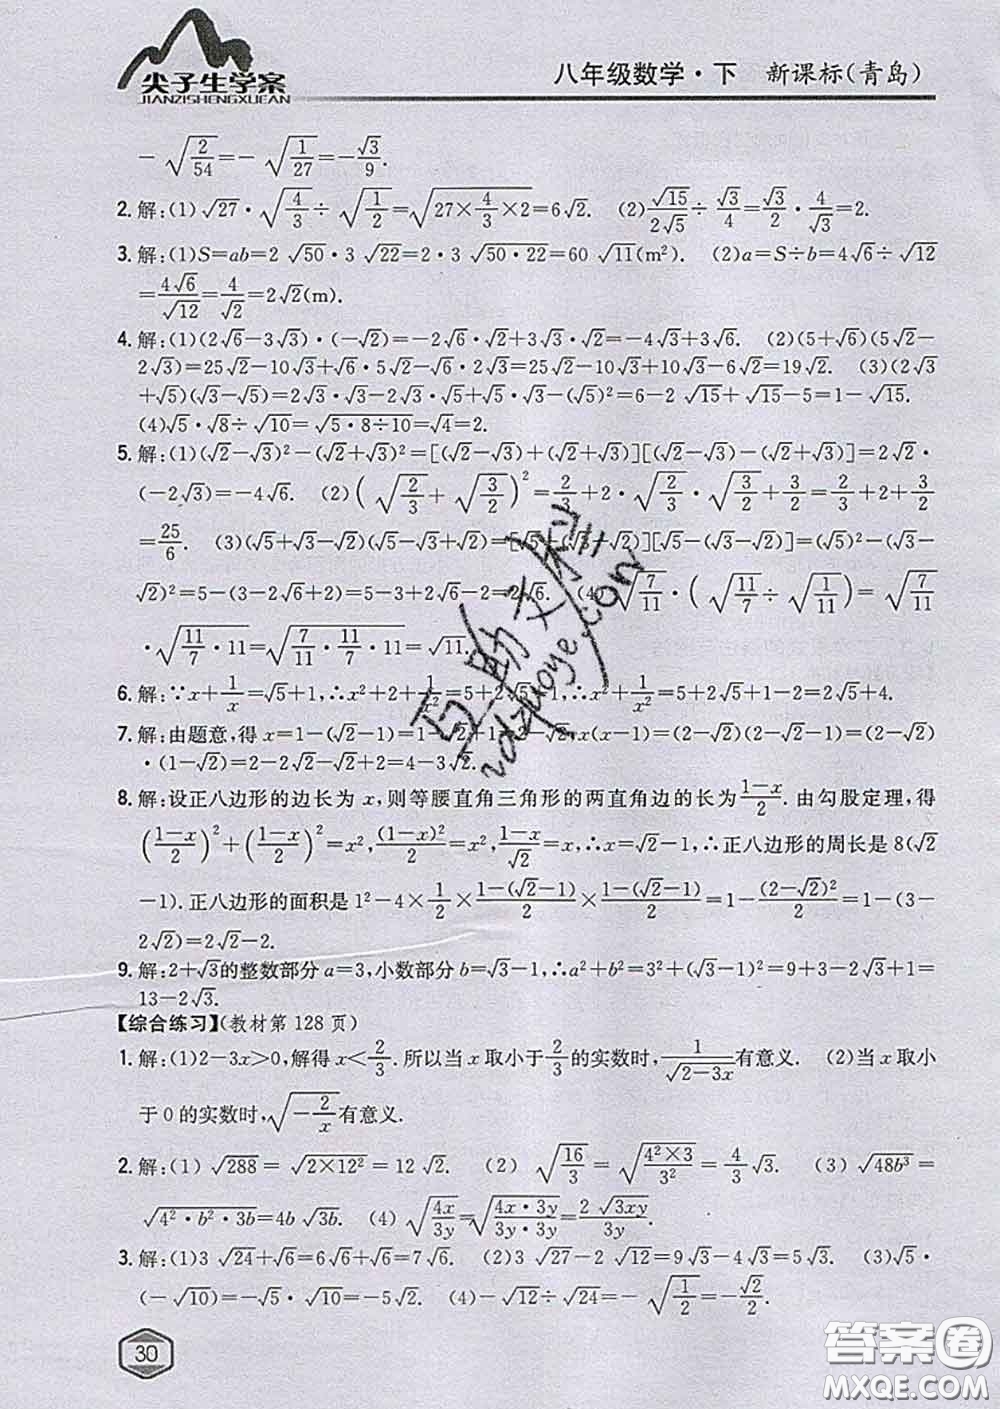 尖子生学案
JIANZISHENGXUEAN
八年级数学·下 新课标(青岛)
-√(2/54)=-√(1/27)=-√3/9.
2. 解:(1)√27·√(4/3)÷√(1/2)=√(27×4/3×2)=6√2. (2)√15/(2√5)÷√3/4=√3/2·4/√3=2.
3. 解:(1)S=ab=2√50·3√22=2·3√(50·22)=60√11(m²). (2)a=S÷b=4√6÷√12
=4√6/√12=4/√2=2√2(m).
4. 解:(1)(2√6-3√3)·(-√2)=-2√6·√2+3√3·√2=-4√3+3√6. (2)(5+√6)(5√2-
2√3)=25√2-10√3+√6·5√2-√6·2√3=25√2-10√3+10√3-6√2=19√2. (3)(2√3
+√5)(√3-√5)=2√3·√3-2√3·√5+√5·√3-(√5)²=6-2√15+√15-5=1-√15.
(4)√5·√8÷√10=√(5·8÷10)=√4=2.
5. 解:(1)(√2-√3)²-(√2+√3)²=[(√2-√3)+(√2+√3)][(√2-√3)-(√2+√3)]=2√2·
(-2√3)=-4√6. (2)(√(2/3)+√(3/2))²=2/3+2·√(2/3)·√(3/2)+3/2=2/3+2+3/2
=25/6. (3)(√5+√3-√2)(√5-√3+√2)=[√5+(√3-√2)][√5-(√3-√2)]=(√5)²-(√3-
√2)²=5-(3-2√6+2)=5-3+2√6-2=2√6. (4)√(7/11)·(√(11/7)÷√(1/11))=√(7/11)
·√(11/7·11)=√(7/11·11/7·11)=√11.
6. 解:∵x+1/x=√5+1,∴x²+2+1/x²=5+2√5+1,∴x²+1/x²=5+2√5+1-2=2√5+4.
7. 解:由题意,得x=1-(√2-1)=1-√2+1=2-√2,x(x-1)=(2-√2)(2-√2-1)=(2-√2)
·(1-√2)=2-2√2-√2+2=4-3√2.
8. 解:设正八边形的边长为x,则等腰直角三角形的两直角边的长为(1-x)/2.由勾股定理,得
((1-x)/2)²+((1-x)/2)²=x²,(1-x)²/2=x²,(1-x)/√2=x,∴x=√2-1,∴正八边形的周长是8(√2
-1).正八边形的面积是1²-4×1/2×(1-(√2-1))/2×(1-(√2-1))/2=1-(2-√2)²/2=1-(3-
2√2)=2√2-2.
9. 解:2+√3的整数部分a=3,小数部分b=√3-1,∴a²+b²=3²+(√3-1)²=9+3-2√3+1=
13-2√3.
【综合练习】(教材第128页)
1. 解:(1)2-3x>0,解得x<2/3.所以当x取小于2/3的实数时,1/√(2-3x)有意义. (2)当x取小
于0的实数时,√(-2/x)有意义.
2. 解:(1)√288=√(2×12²)=12√2. (2)√(16/3)=√((4²×3)/3²)=4/3√3. (3)√(48b³)=
√(4²·b²·3b)=4b√(3b). (4)√(4x/3y)=√((4x·3y)/(3y·3y))=2√(3xy)/3y.
3. 解:(1)3√24+√6=6√6+√6=7√6. (2)3√27-2√12=9√3-4√3=5√3. (3)√5·
(-√10)=-√5·√10=-5√2. (4)-√12÷√24=-√(1/2)=-√2/2.
30
互助文档
zdzuoye.com
答案圈
MXQE.COM